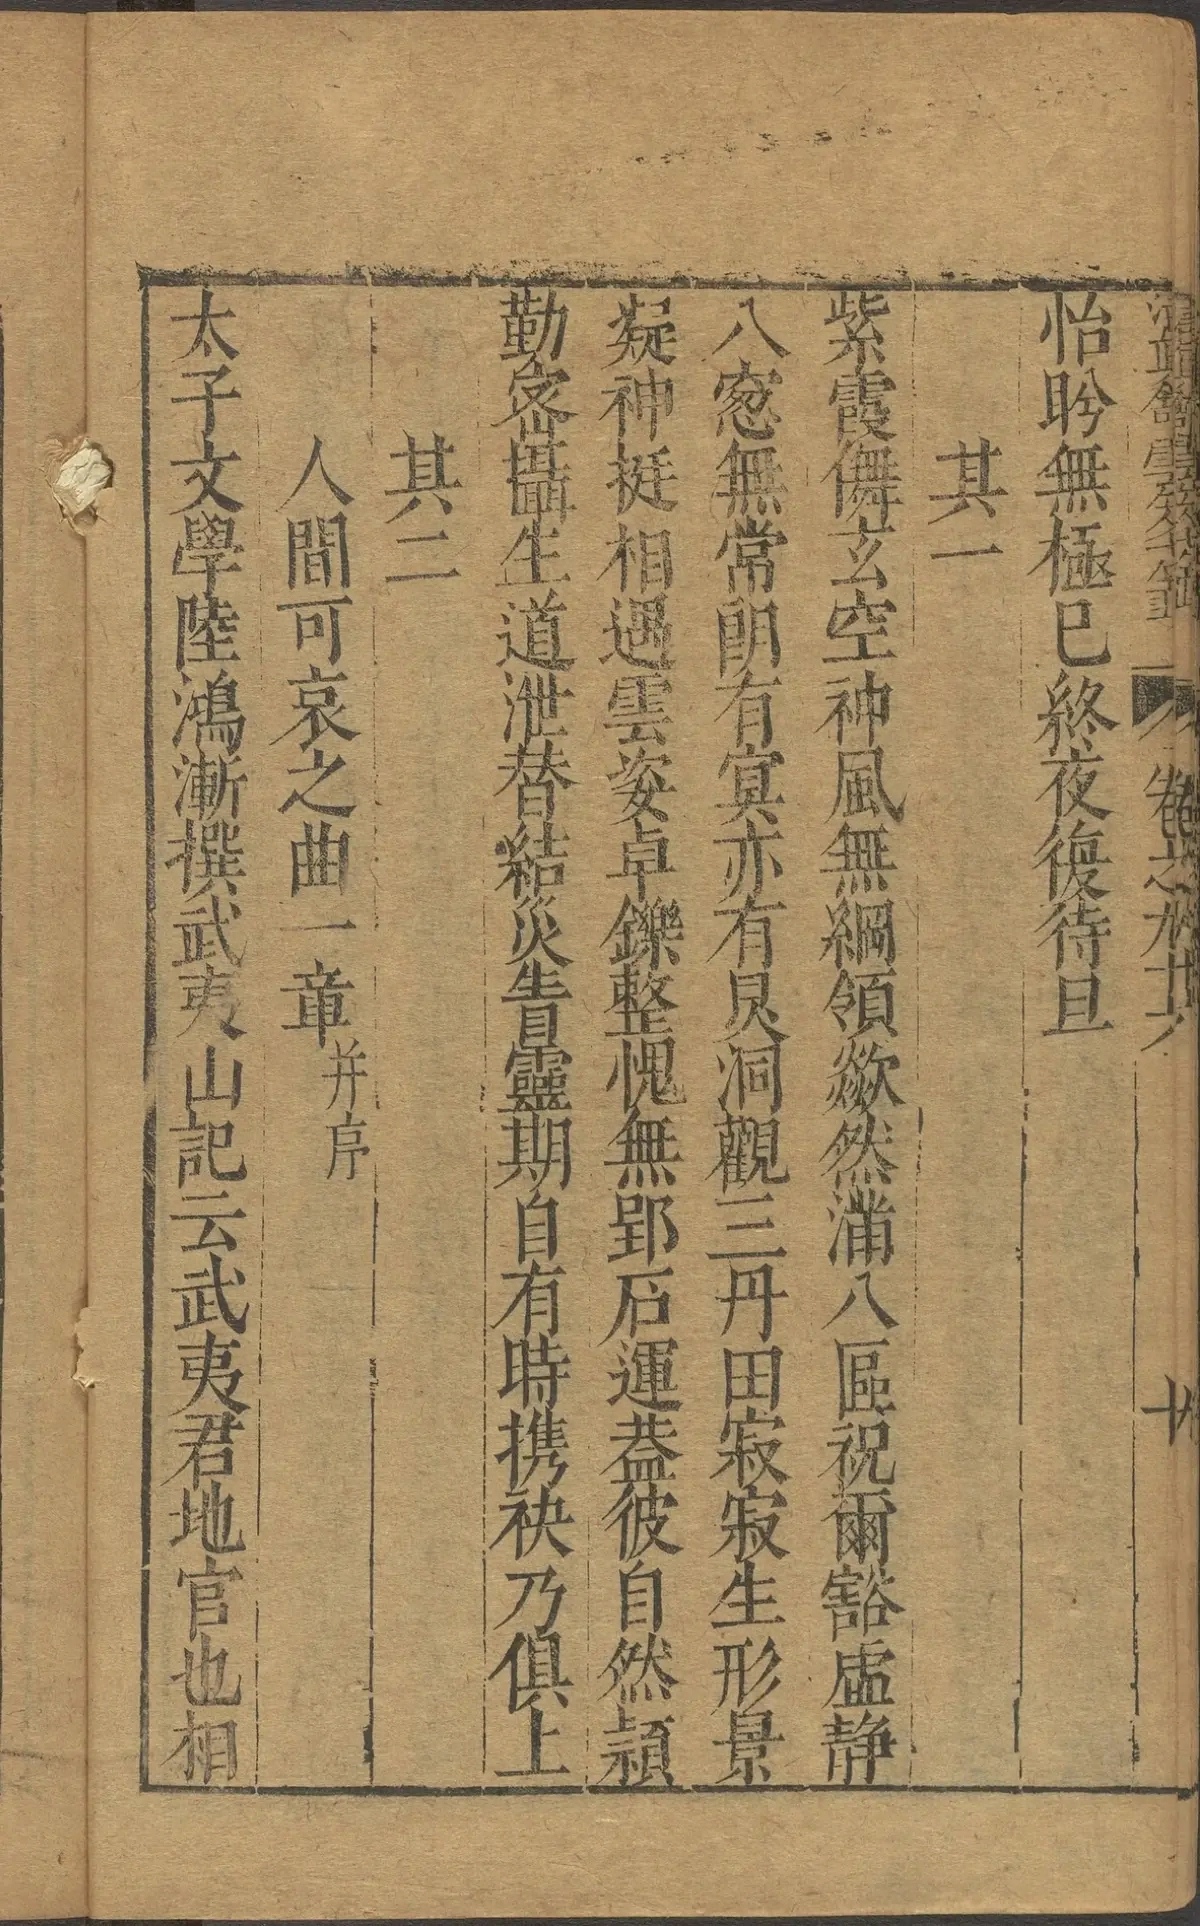 卷之
怡盻無極巳終夜復待旦
其一
紫霞儛玄空神風無綱領歘然滿八區祝爾豁虛静
八窓無常朗有㝠亦有炅洞觀三丹田寂寂生形景
凝神挺相遇雲姿卓鑠整愧無郢石運葢彼自然穎
勤宻攝生道泄替結災眚靈期自有時携袂乃俱上
其二
人間可哀之曲一章并序
太子文學陸鴻漸撰武夷山記云武夷君地官也相